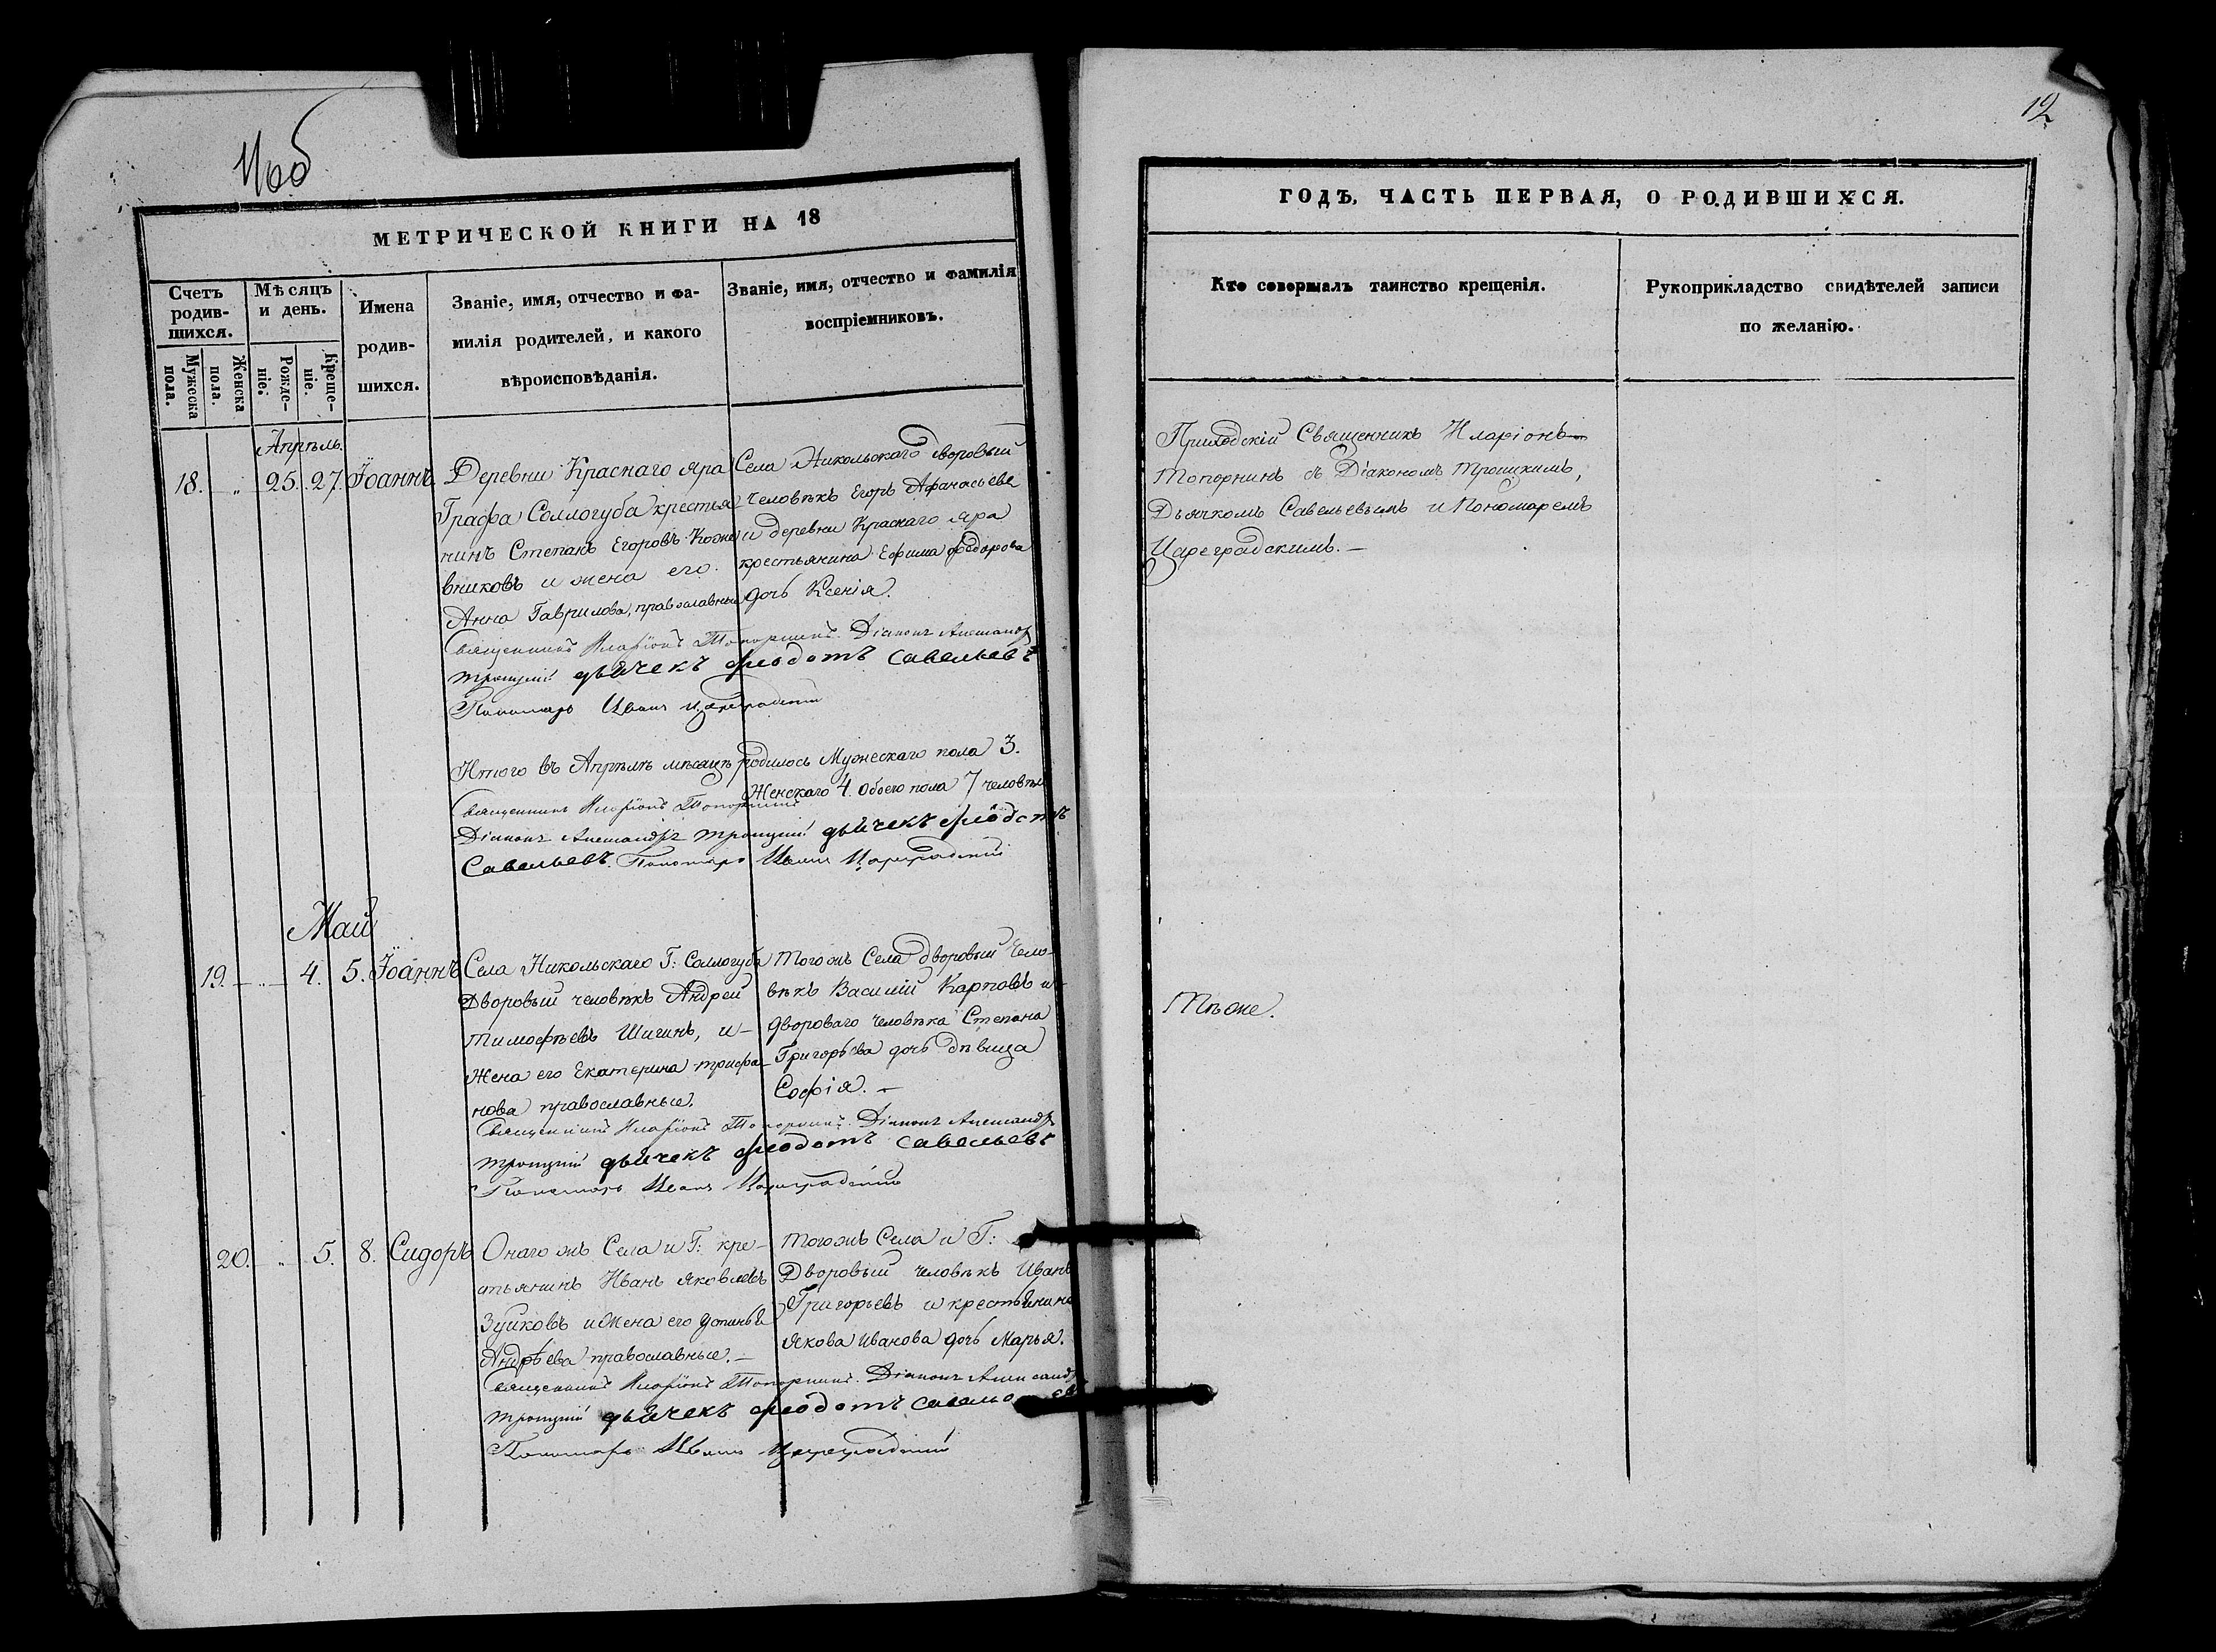 11об
12
МЕТРИЧЕСКОЙ КНИГИ НА 18
Счетъ родив-шихся.
Мѣсяцъ и день.
Имена родив-шихся.
Званіе, имя, отчество и фа-
милія родителей, и какого
вѣроисповѣданія.
Званіе, имя, отчество и фамилія
воспріемниковъ.
Мужеска пола.
Женска пола.
Рожде-ніе.
Креще-ніе.
Апрѣль.
18. „ 25. 27. Іоаннъ.
Деревни Краснаго яра
Графа Соллогуба крестья-
нинъ Степанъ Егоровъ Коже
вниковъ и жена его
Анна Гаврилова, православные
Села Никольскаго дворовый
человѣкъ Егоръ Афанасьевъ
и деревни Краснаго яра
крестьянина Ефима Федорова
дочь Ксенія.
Священникъ Иларіонъ Топорнинъ. Діаконъ Александръ
Троицкій дьячекъ Феодотъ Савельевъ
Пономарь Иванъ Цареградскій
Итого въ Апрѣлѣ мѣсяцѣ родилось Мужескаго пола 3.
Женскаго 4. Обоего пола 7 человѣкъ
Священникъ Иларіонъ Топорнинъ
Діаконъ Александръ Троицкій дьячекъ Феодотъ
Савельевъ. Пономарь Иванъ Цареградскій
Май
19. „ 4. 5. Іоаннъ
Села Никольскаго Г: Соллогуба
Дворовый человѣкъ Андрей
Тимофѣевъ Шигинъ, и
жена его Екатерина Трифа-
нова православные.
Того жъ Села дворовый чело-
вѣкъ Василій Карповъ и
двороваго человѣка Степана
Григорьева дочь дѣвица
Софія. —
Священникъ Иларіонъ Топорнинъ. Діаконъ Александръ
Троицкій дьячекъ Феодотъ Савельевъ
Пономарь Иванъ Цареградскій
20. „ 5. 8. Сидоръ
Онаго жъ Села и Г: кре-
стьянинъ Иванъ Яковлевъ
Зуйковъ и жена его Устинья
Андрѣева православные. —
Того жъ Села и Г:
Дворовый человѣкъ Иванъ
Григорьевъ и крестьянина
Якова Иванова дочь Марья.
Священникъ Иларіонъ Топорнинъ. Діаконъ Александръ
Троицкій дьячекъ Феодотъ Савельевъ
Пономарь Иванъ Цареградскій
ГОДЪ, ЧАСТЬ ПЕРВАЯ, О РОДИВШИХСЯ.
Кто совершалъ таинство крещенія.
Рукоприкладство свидѣтелей записи
по желанію.
Приходскій Священникъ Иларіонъ
Топорнинъ съ Діакономъ Троицкимъ,
Дьячкомъ Савельевымъ и Пономаремъ
Цареградскимъ. —
Тѣ же.